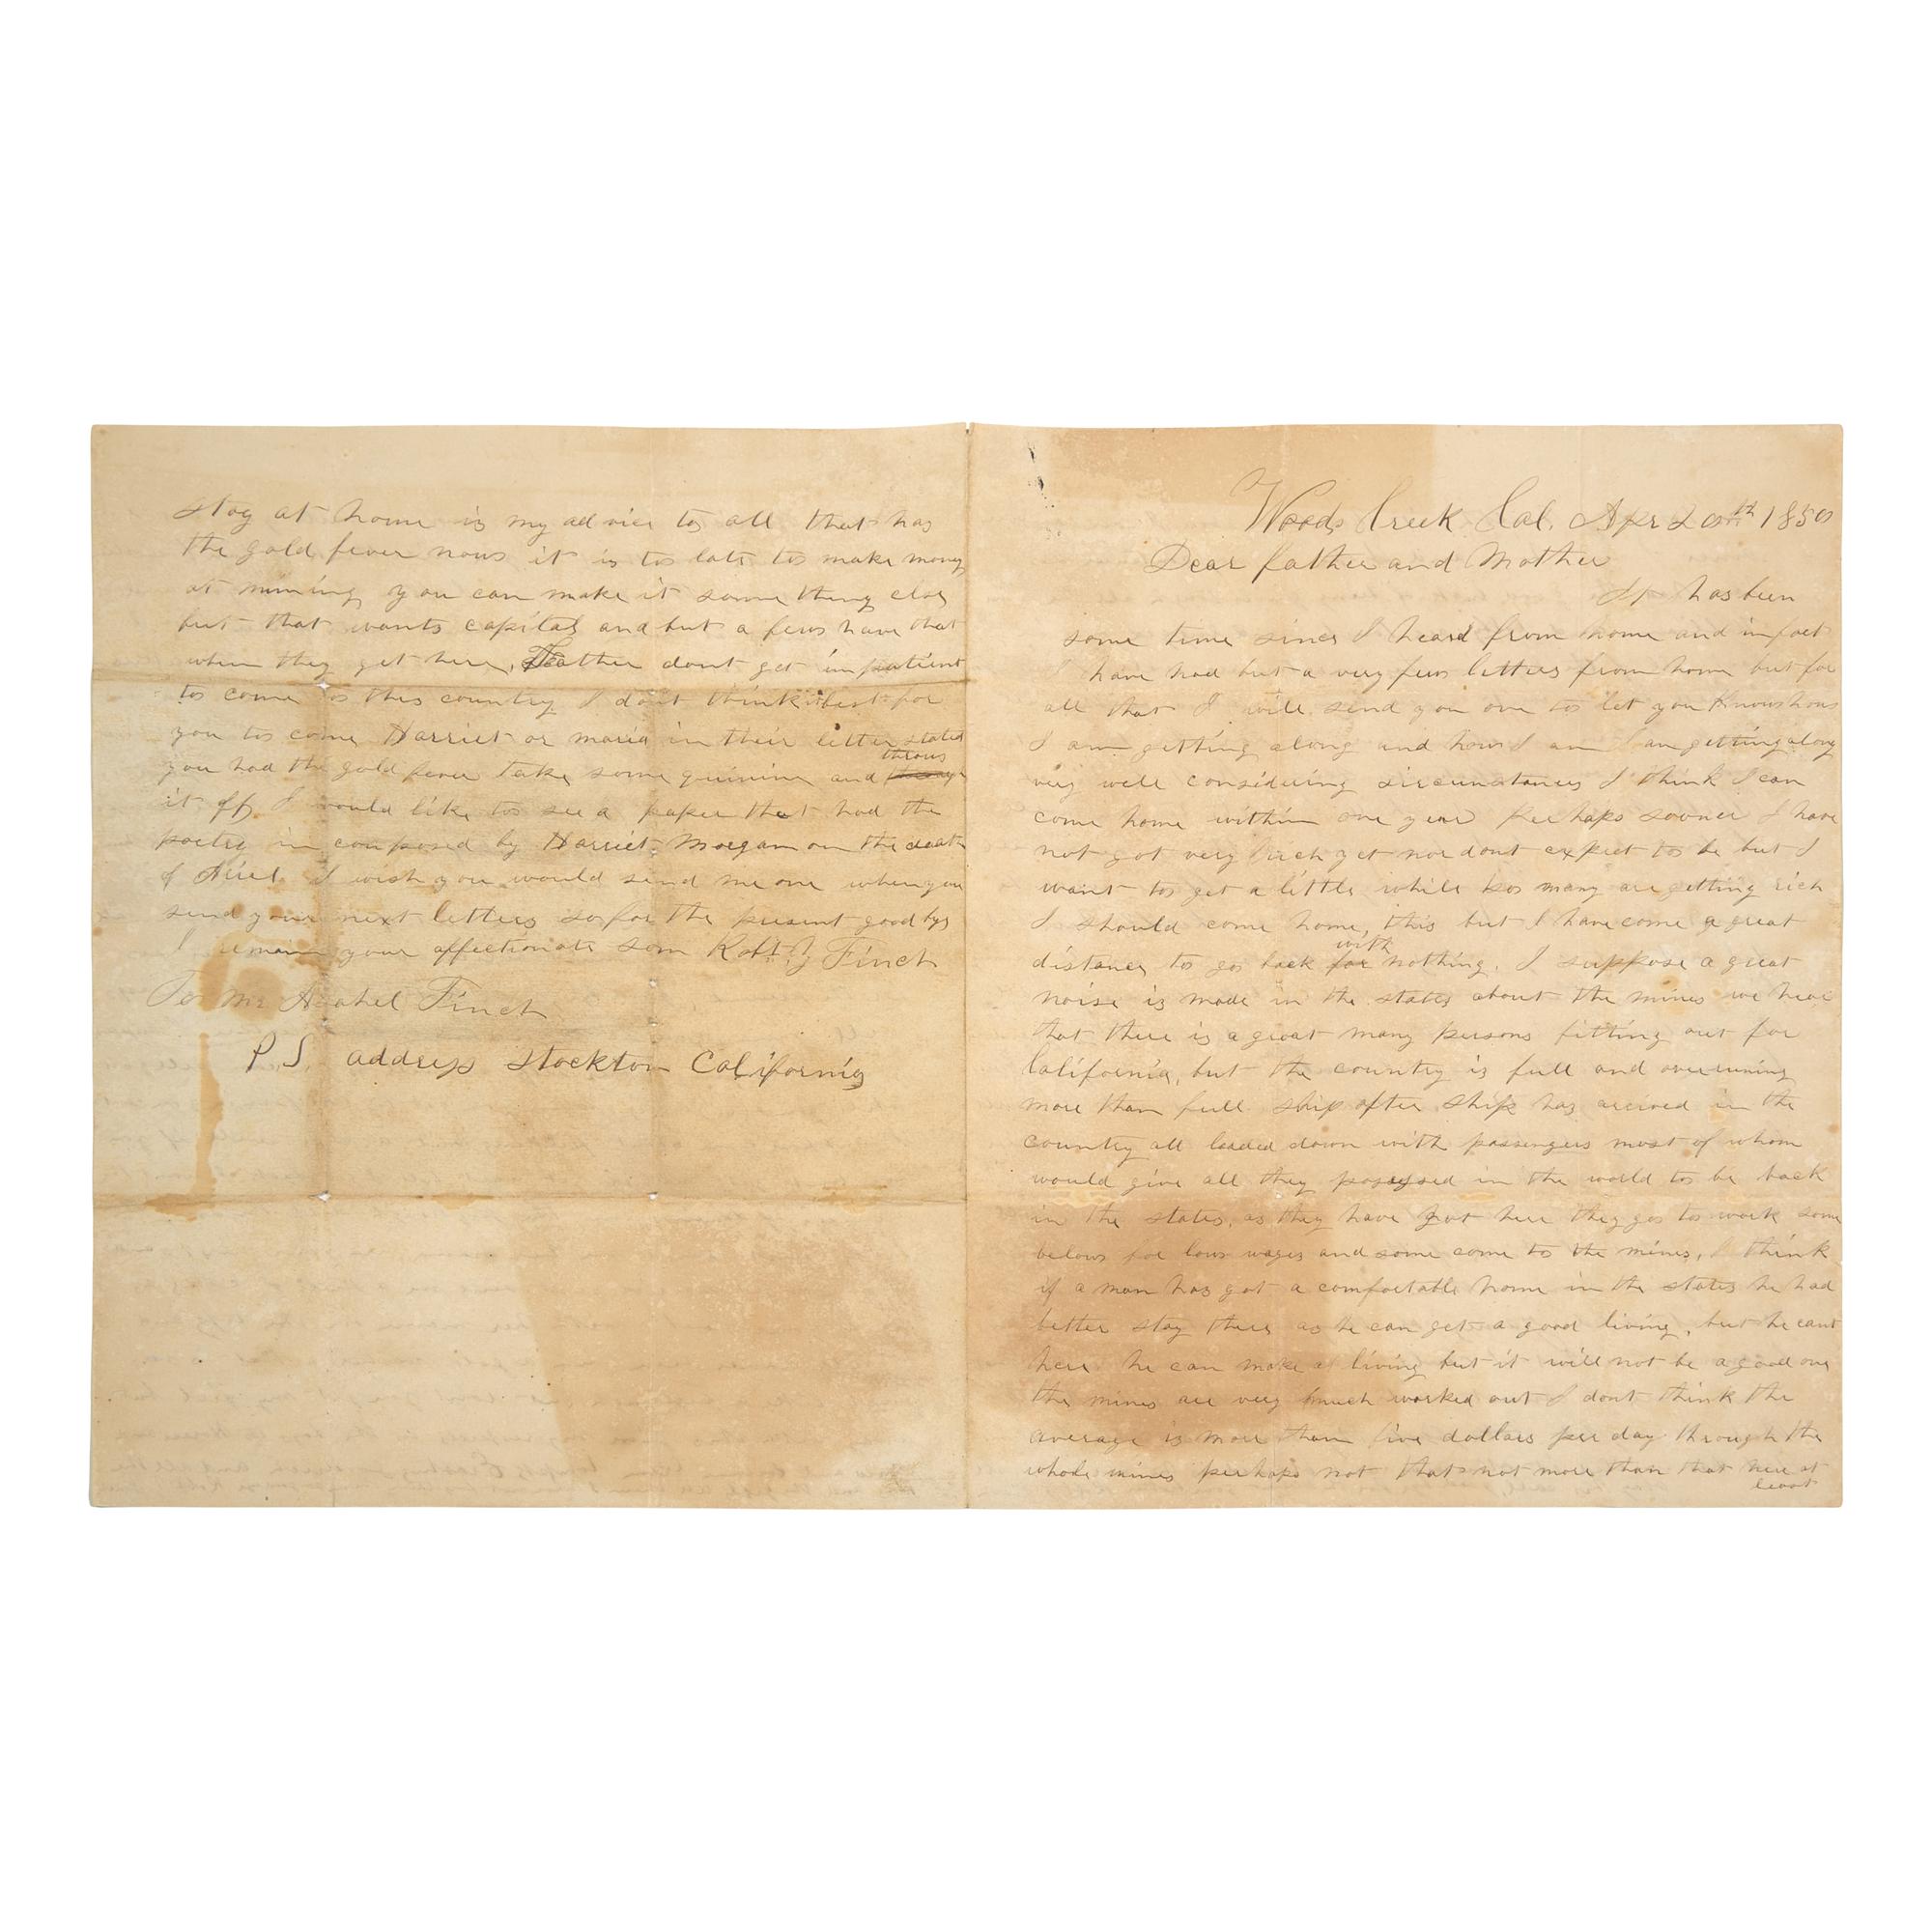 Woods Creek Cal. Apr 20th 1850
Dear father and Mother
It has been
some time since I heard from home and in fact
I have had but a very few letters from home but for
all that I will send you one to let you know how
I am getting along and how I am I am getting along
very well considering circumstances I think I can
come home within one year perhaps sooner I have
not got very rich yet nor dont expect to be but I
want to get a little while so many are getting rich
I should come home, this but I have come a great
distance to go back for with nothing. I suppose a great
noise is made in the states about the mines we hear
that there is a great many persons fitting out for
California, but the country is full and overruning
more than full ship after ship has arrived in the
country all loaded down with passengers most of whom
would give all they possessed in the world to be back
in the states, as they have got here they go to work some
below for low wages and some come to the mines, I think
if a man has got a comfortable home in the states he had
better stay there as he can get a good living, but he cant
here he can make a living but it will not be a good one
the mines are very much worked out I dont think the
average is more than five dollars per day through the
whole mines perhaps not that not more than that here at
least
stay at home is my advice to all that has
the gold fever now it is to late to make money
at mining you can make it some thing else
but that wants capital and but a few have that
when they get here, Father dont get impatient
to come to this country I dont think it best for
you to come Harriet or maria in their letter stated
you had the gold fever take some quinine and throw
it off I would like to see a paper that had the
poetry in composed by Harriet Morgan on the death
of I wish you would send me one when you
send your next letters so for the present good bye
I remain your affectionate son Robt. J Finch
To Mr Asahel Finch
P.S. address Stockton California